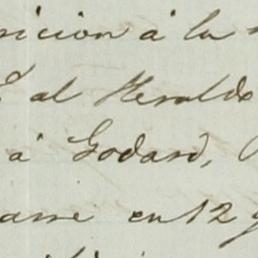 sicion à la
al Heraldo
à Godard,
arse en 12